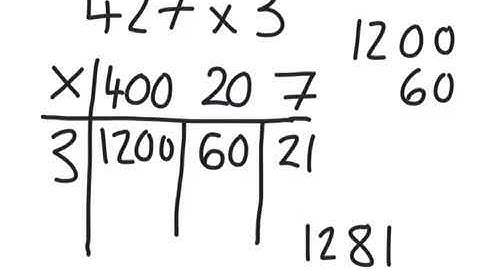 427 x 3
x 400 20 7
3 1200 60 21
1200
60
1281